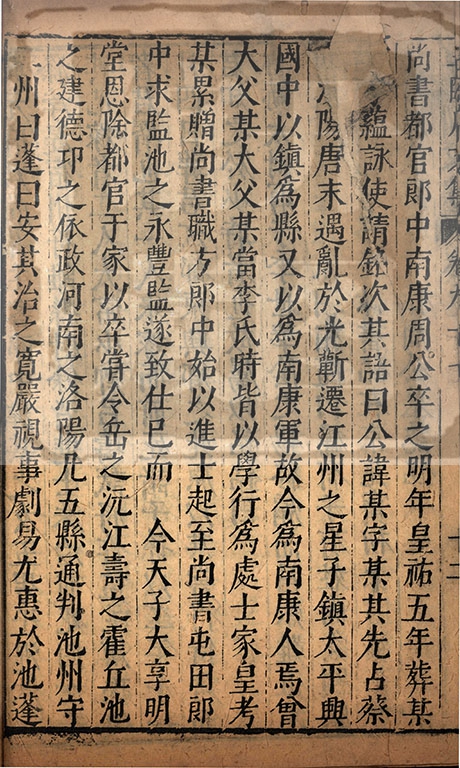 尚書都官郎中南康周公卒之明年皇祐五年葬某
蘊詠使請銘次其語曰公諱某字某其先占蔡
陽唐末遇亂於光蘄遷江州之星子鎮太平興
國中以鎮為縣又以為南康軍故今為南康人焉曾
大父某大父某當李氏時皆以學行為處士家皇考
某累贈尚書職方郎中始以進士起至尚書屯田郎
中求監池之永豐監遂致仕已而 今天子大享明
堂恩陰都官于家以卒嘗令岳之沅江壽之霍丘池
之建德邛之依政河南之洛陽凡五縣通判池州守
州曰蓬曰安其治之寬嚴視事劇易尤惠於池蓬